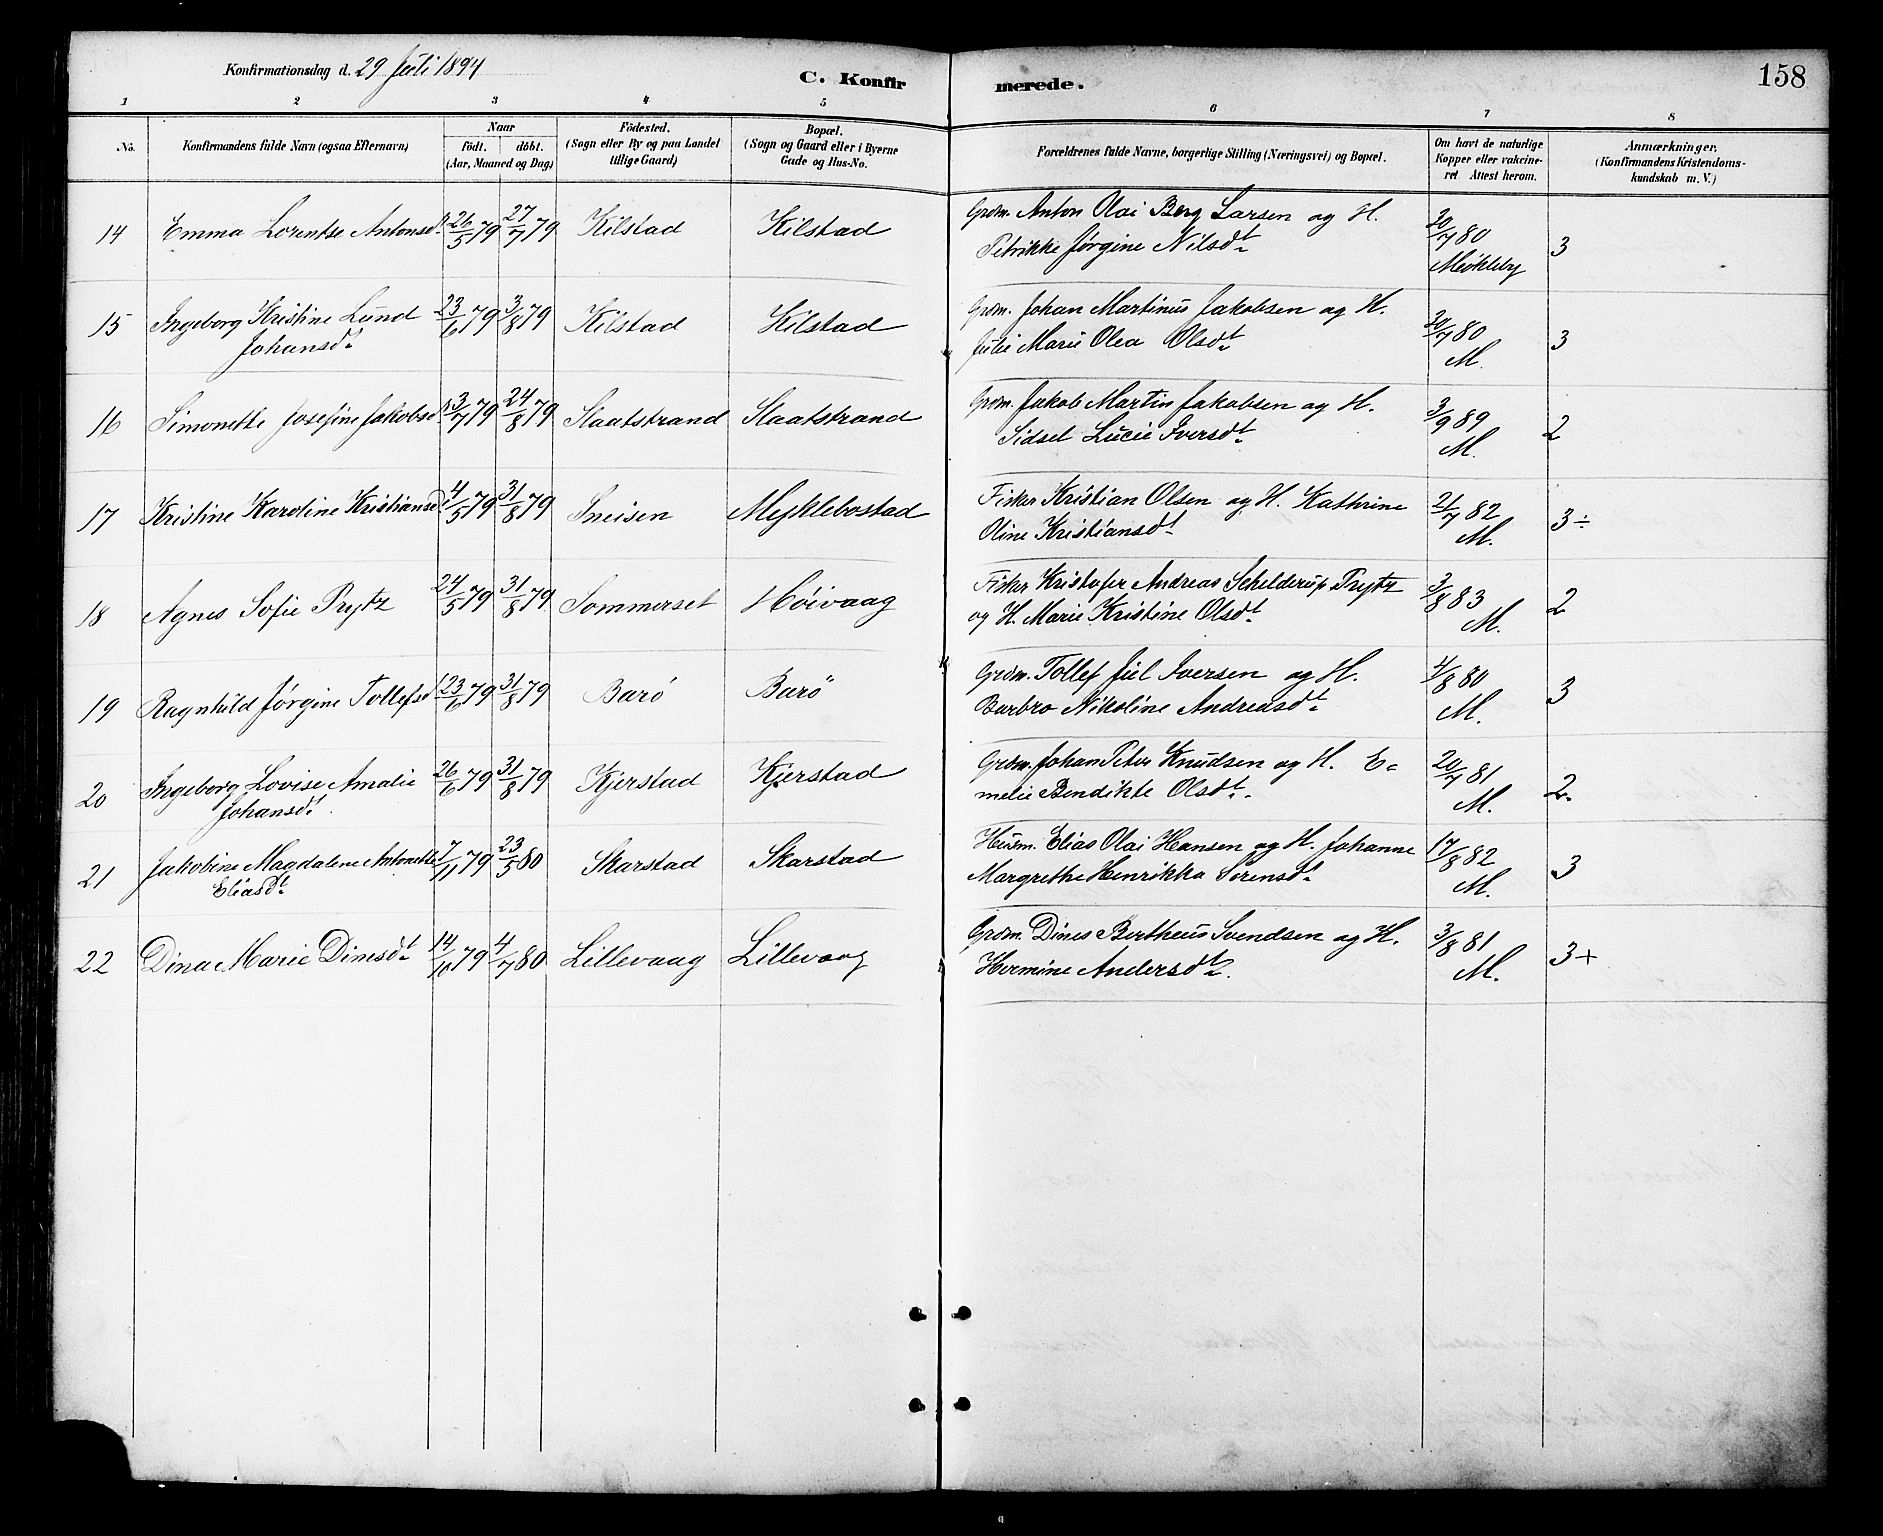 Konfirmationsdag d. 29 Juli 1894
C. Konfirmerede.
158
1 2 3 4 5 6 7 8
No.
Konfirmandens fulde Navn (ogsaa Efternavn)
Naar
födt. döbt.
(Aar, Maaned og Dag)
Födested.
(Sogn eller By og paa Landet
tillige Gaard)
Bopæl.
(Sogn og Gaard eller i Byerne
Gade og Hus-No.
Forældrenes fulde Navne, borgerlige Stilling (Næringsvei) og Bopæl.
Om havt de naturlige
Kopper eller vakcine-
ret. Attest herom.
Anmærkninger.
(Konfirmandens Kristendoms-
kundskab m. V.)
14 Emma Lorentse Antonsdt 26/5 79 27/7 79 Kilstad Kilstad Grdm. Anton Olai Berg Larsen og H. 30/7 80 3
Petrikke Jørgine Nilsdt Meökleby
15 Ingeborg Kristine Lund 23/6 79 3/8 79 Kilstad Kilstad Grdm. Johan Martinus Jakobsen og H. 30/7 80 3
Johansdt Julie Marie Olea Olsdt M.
16 Simonette Josefine Jakobsdt 3/7 79 24/8 79 Slaatstrand Slaatstrand Grdm. Jakob Martin Jakobsen og H. 3/9 89 2
Sidsel Lucie Iversdt M.
17 Kristine Karoline Kristiansdt 4/5 79 31/8 79 Sneisen Myklebostad Fisker Kristian Olsen og H. Kathrine 21/7 82 3÷
Oline Kristiansdt M.
18 Agnes Sofie Prytz 24/5 79 31/8 79 Sommerset Höivaag Fisker Kristofer Andreas Schelderup Prytz 3/8 83 2
og H. Marie Kristine Olsdt M.
19 Ragnhild Jørgine Tollefsdt 23/6 79 31/8 79 Barö Barö Grdm. Tollef Juel Iversen og H. 4/8 80 3
Barbro Nikoline Andreasdt M.
20 Ingeborg Lovise Amalie 26/6 79 31/8 79 Kjerstad Kjerstad Grdm. Johan Peter Knudsen og H. E= 20/7 81 2.
Johansdt. melie Bendikte Olsdt. M.
21 Jakobine Magdalene Antonette 7/11 79 23/5 80 Skarstad Skarstad Husm. Elias Olai Hansen og H. Johanne 17/8 82 3
Eliasdt Margrethe Henrikka Sörensdt M.
22 Dina Marie Dinesdt 14/10 79 4/7 80 Lillevaag Lillevaag Grdm. Dines Bertheus Svendsen og H. 3/8 81 3+
Hermine Andersdt. M.